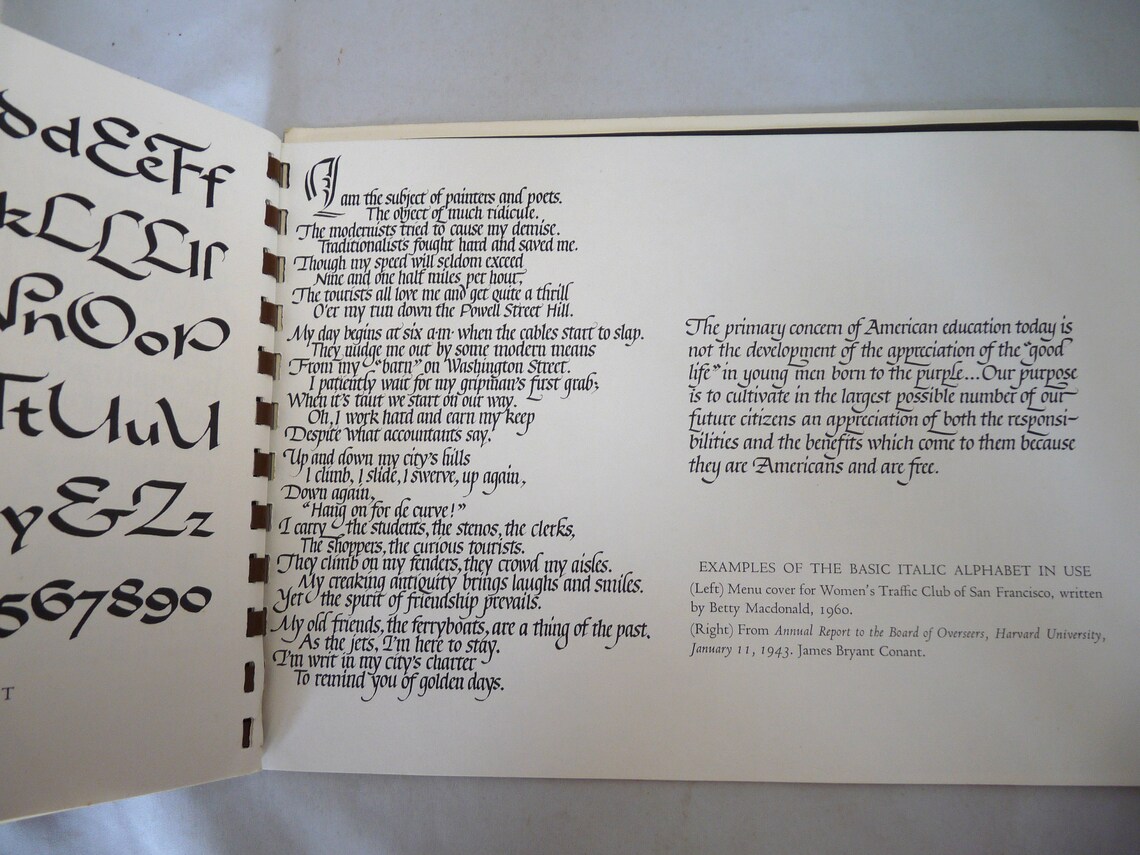 ddEeFf
kLLLLlſ
NnOoP
TtUuU
y&Zz
567890
T
I am the subject of painters and poets.
The object of much ridicule.
The modernists tried to cause my demise.
Traditionalists fought hard and saved me.
Though my speed will seldom exceed
Nine and one half miles per hour,
The tourists all love me and get quite a thrill
O'er my run down the Powell Street Hill.
My day begins at six a·m· when the cables start to slap.
They nudge me out by some modern means
From my "barn" on Washington Street.
I patiently wait for my gripman's first grab;
When it's taut we start on our way.
Oh, I work hard and earn my keep
Despite what accountants say.
Up and down my city's hills
I climb, I slide, I swerve, up again,
Down again,
"Hang on for de curve!"
I carry the students, the stenos, the clerks,
The shoppers, the curious tourists.
They climb on my fenders, they crowd my aisles.
My creaking antiquity brings laughs and smiles.
Yet the spirit of friendship prevails.
My old friends, the ferryboats, are a thing of the past.
As the jets, I'm here to stay.
I'm writ in my city's charter
To remind you of golden days.
The primary concern of American education today is
not the development of the appreciation of the "good
life" in young men born to the purple...Our purpose
is to cultivate in the largest possible number of our
future citizens an appreciation of both the responsi-
bilities and the benefits which come to them because
they are Americans and are free.
EXAMPLES OF THE BASIC ITALIC ALPHABET IN USE
(Left) Menu cover for Women's Traffic Club of San Francisco, written
by Betty Macdonald, 1960.
(Right) From Annual Report to the Board of Overseers, Harvard University,
January 11, 1943. James Bryant Conant.